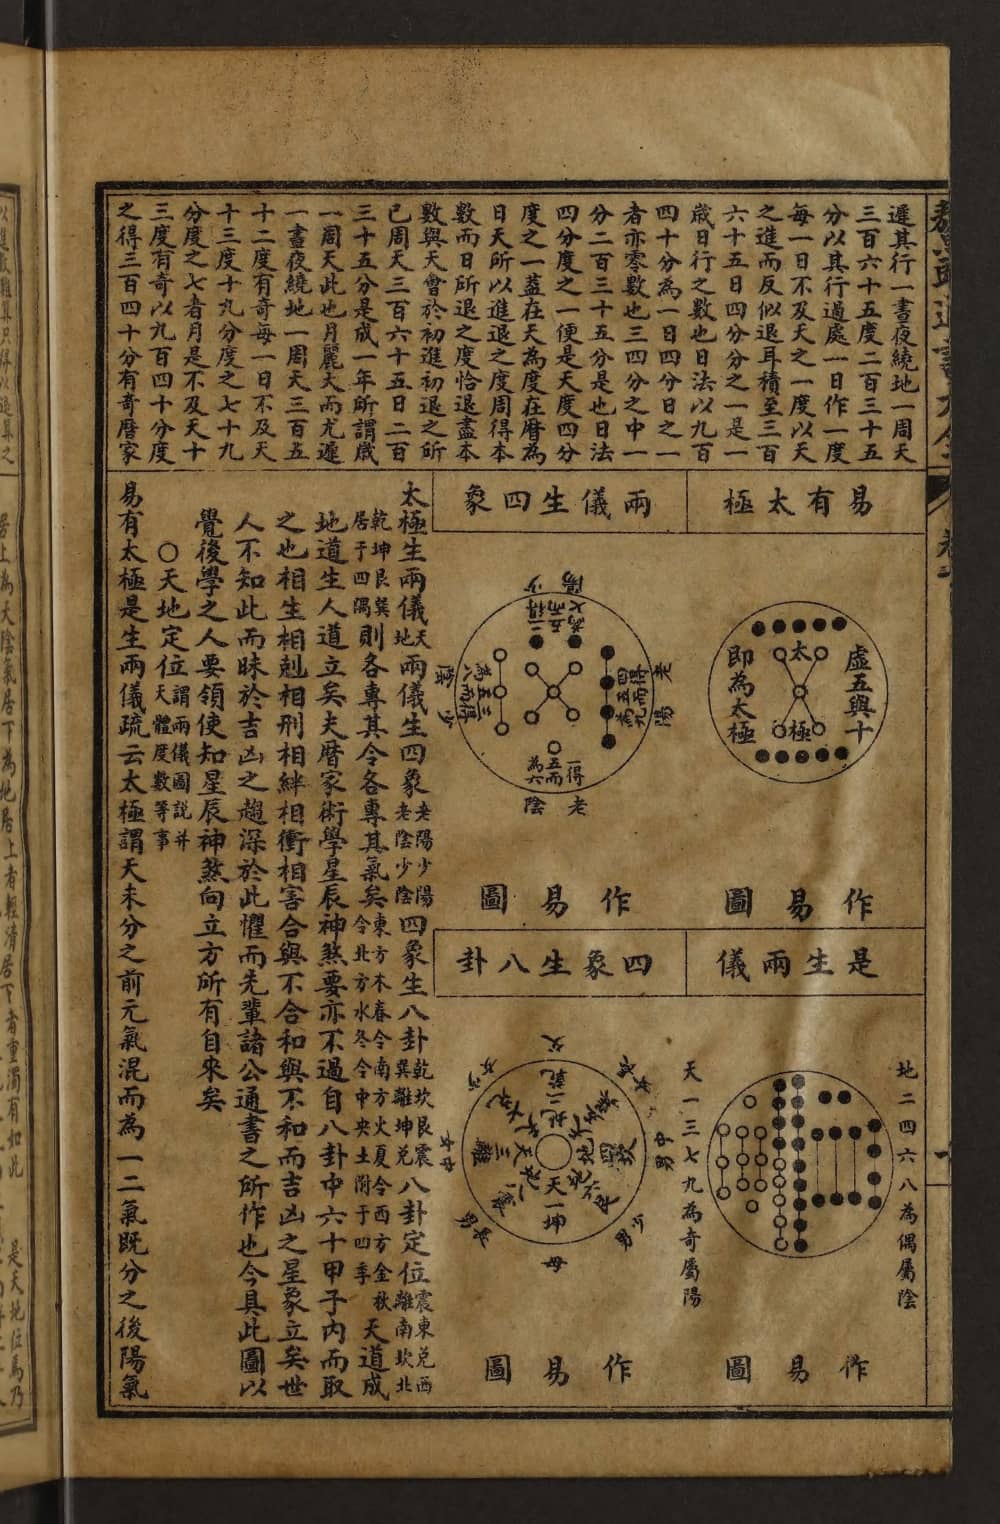 遲其行一晝夜繞地一周天
三百六十五度二百三十五
分以其行過處一日作一度
每一日不及天之一度以天
之進而反似退耳積至三百
六十五日四分分之一是一
歲日行之數也日法以九百
四十分為一日四分日之一
者亦零數也三四分之中一
分二百三十五分是也日法
四分度之一便是天度四分
度之一蓋在天為度在曆為
日天所以進退之度周得本
數而日所退之度恰退盡本
數與天會於初進初退之所
已周天三百六十五日二百
三十五分是成一年所謂歲
一周天此也月麗天而尤遲
一晝夜繞地一周天三百五
十二度有奇每一日不及天
十三度十九分度之七十九
分度之七者月是不及天十
三度有奇以九百四十分度
之得三百四十分有奇曆家
易有太極
虛五與十
太極
即為太極
作易圖
兩儀生四象
老陽
少陰
老陰
少陽
作易圖
是生兩儀
地二四六八為偶屬陰
天一三七九為奇屬陽
作易圖
四象生八卦
父
母
中男
少男
長男
中女
作易圖
太極生兩儀天地兩儀生四象老陽少陽老陰少陰四象生八卦乾坎艮震巽離坤兌八卦定位震東兌西離南坎北
乾坤艮巽居于四隅則各專其令各專其氣矣東方木春令南方火夏令西方金秋令北方水冬令中央土附于四季天道成
地道生人道立矣夫曆家術學星辰神煞要亦不過自八卦中六十甲子內而取
之也相生相剋相刑相絆相衝相害合與不合和與不和而吉凶之星象立矣世
人不知此而昧於吉凶之趨深於此懼而先輩諸公通書之所作也今具此圖以
覺後學之人要領使知星辰神煞向立方所有自來矣
○天地定位謂兩儀圖說并天體度數等事
易有太極是生兩儀疏云太極謂天未分之前元氣混而為一二氣既分之後陽氣